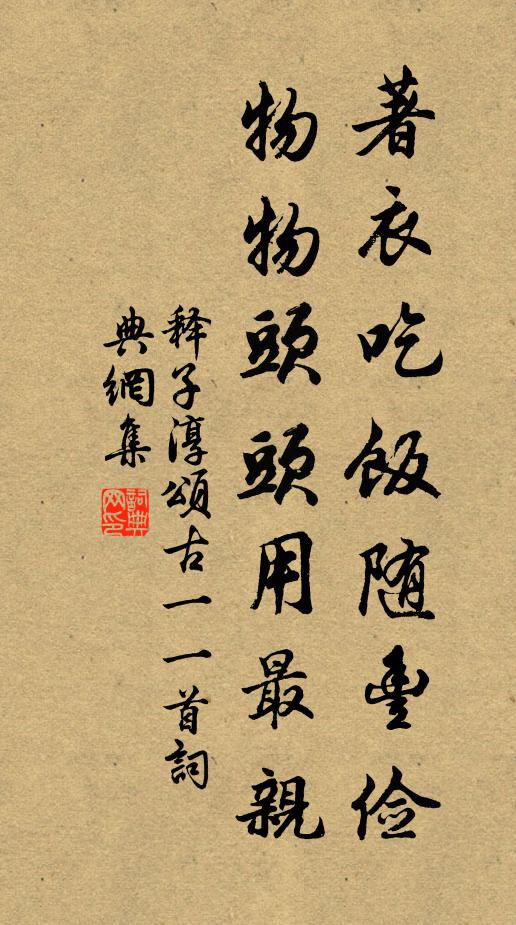 著衣吃飯随豊儉
物物頭頭用最親
釋子淳頌古一一首詞
典網集
詞典
网印